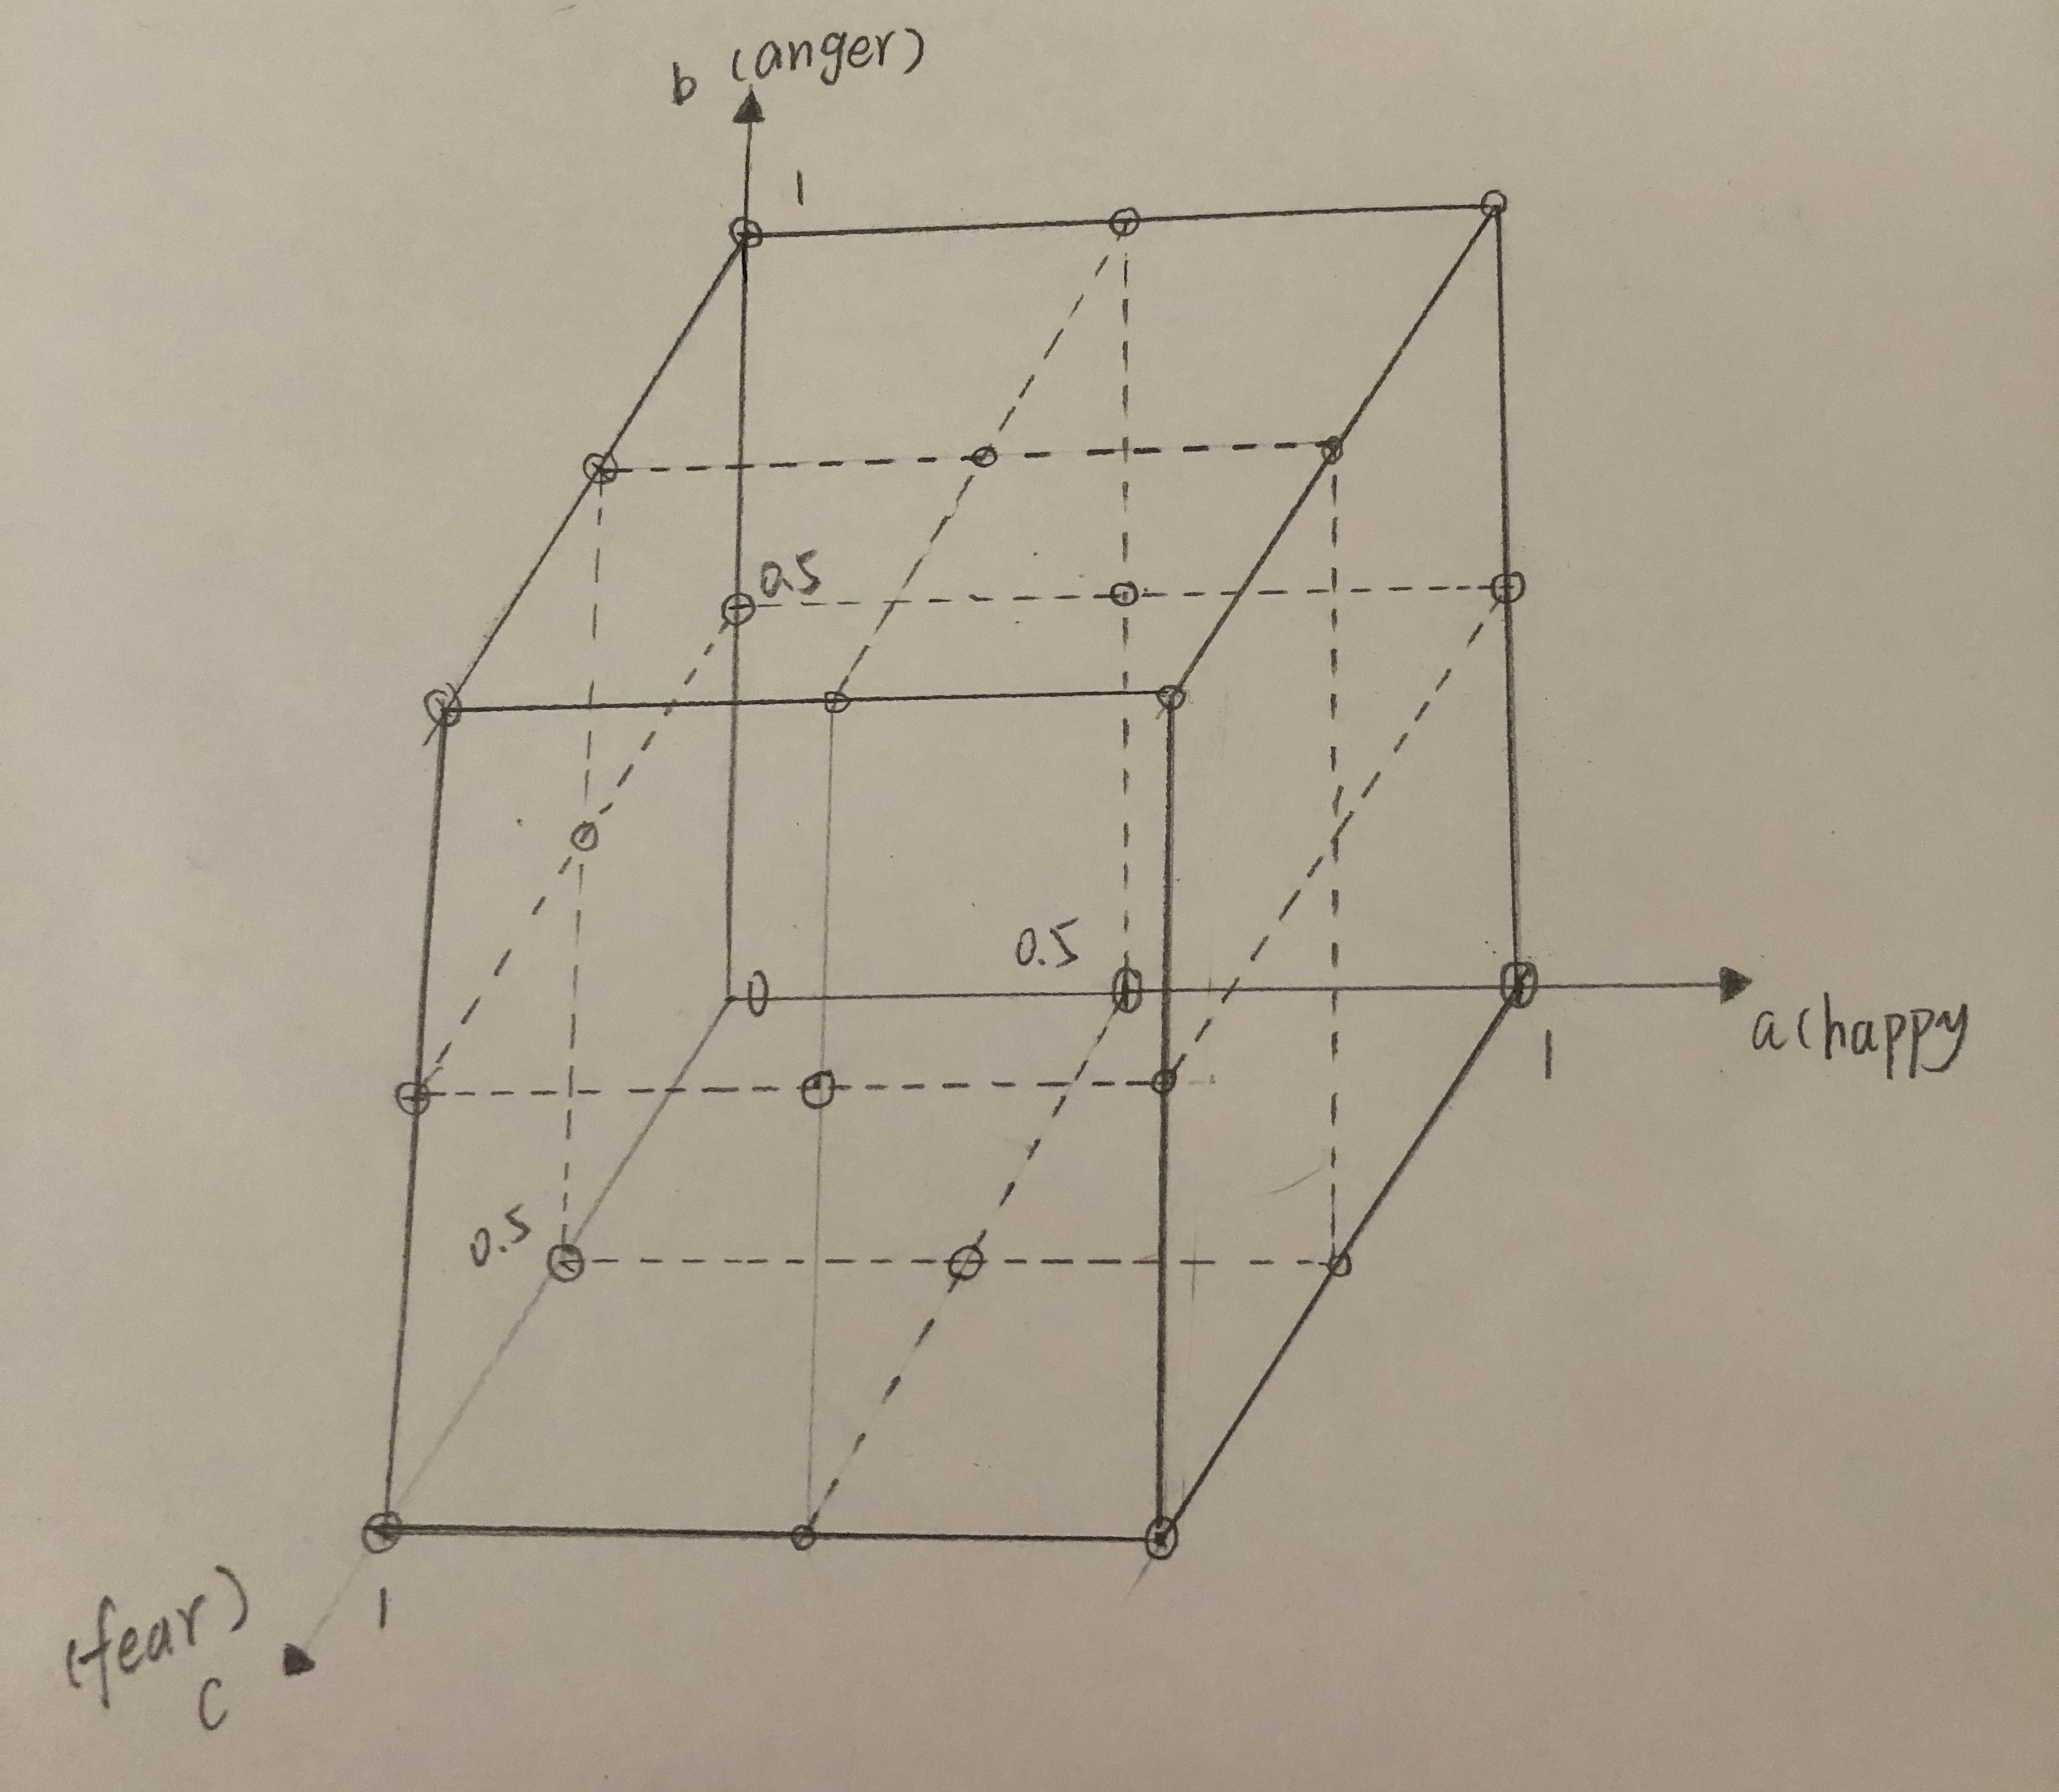 b (anger)
1
0.5
0.5
0
a (happy
1
0.5
1
(fear)
c